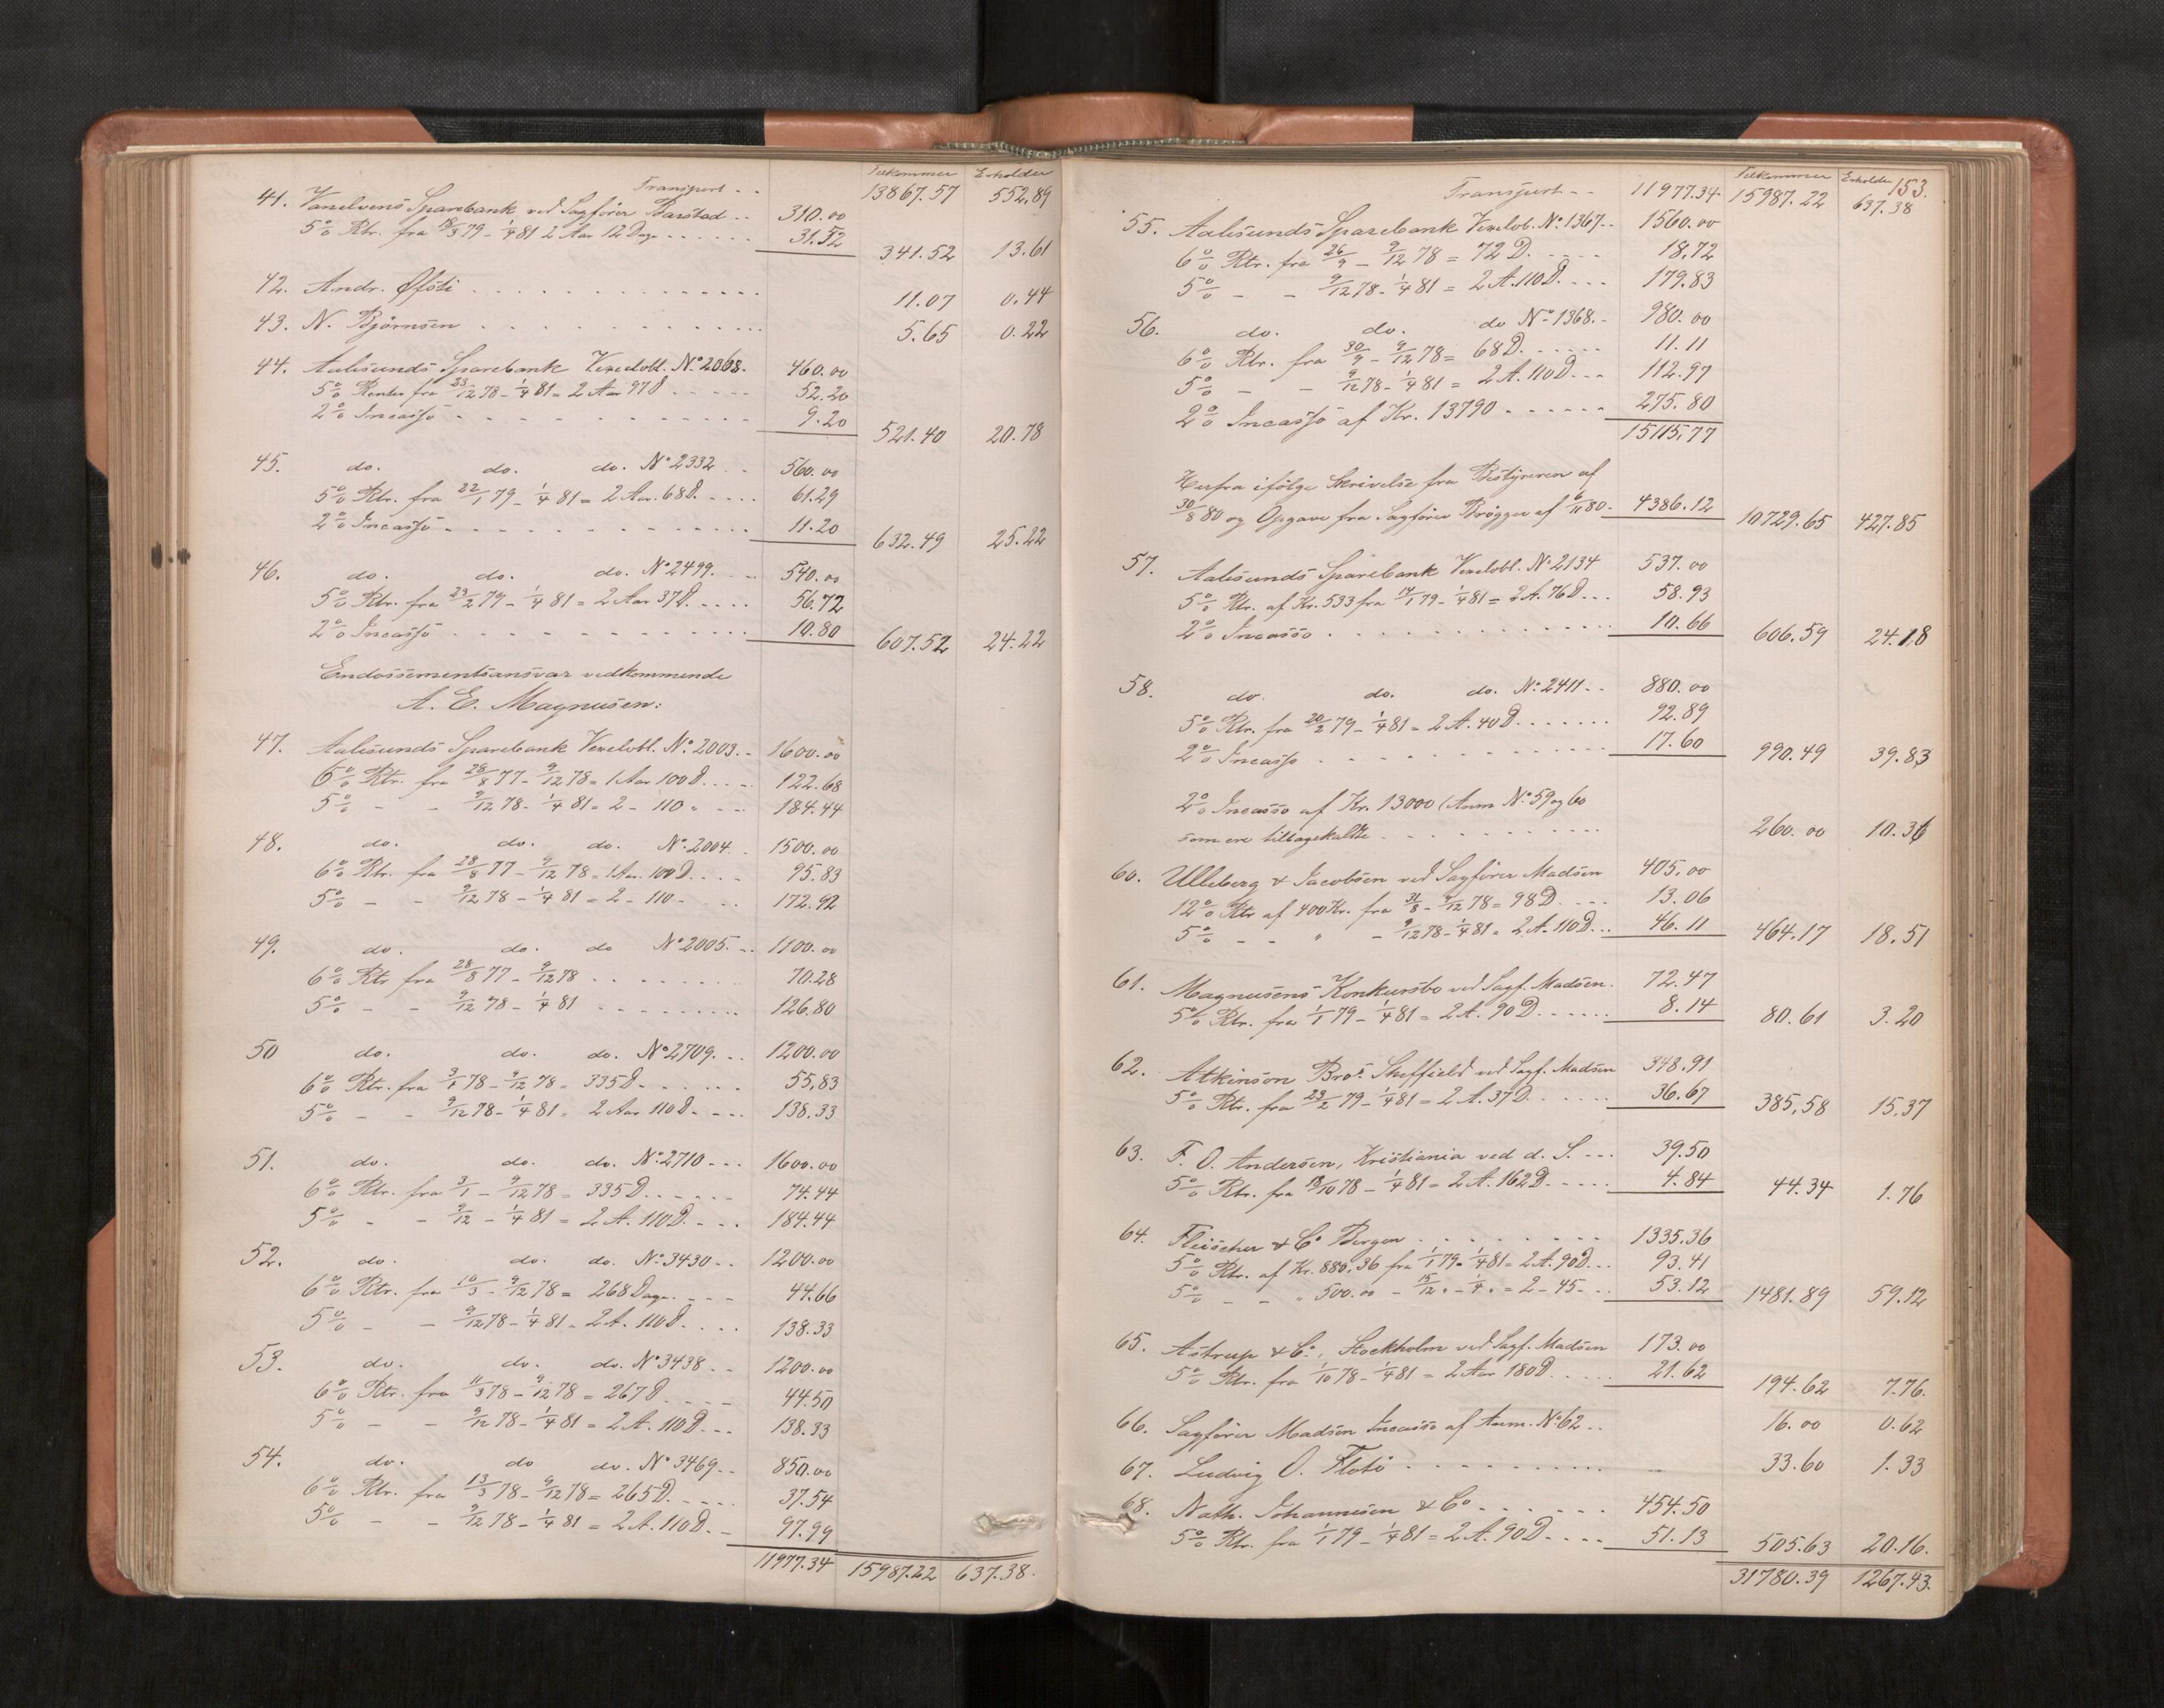 Tilkommer Erholder
Transport - - 13867.57 552.89
41. Vanelvens Sparebank ved Sagfører Barstad - - 310.00
5% Rtr. fra 18/3 79 - 1/4 81 2 Aar 12 Dage - - - - - 31.52 341.52 13.61
42. Andr. Øfsti . . . . . . . . . . . 11.07 0.44
43. N. Bjørnsen . . . . . . . . . . . 5.65 0.22
44. Aalesunds Sparebank Vexelobl. No. 2068. 460.00
5% Renter fra 23/12 78 - 1/4 81 = 2 Aar 97 D . . . . . 52.20
2% Incasso . . . . . . . . . . 9.20 521.40 20.78
45. do. do. do. No 2332 . . 560.00
5% Rtr. fra 22/1 79 - 1/4 81 = 2 Aar. 68 D. - - - - 61.29
2% Incasso - - - - - - - - - - 11.20 632.49 25.22
46. do. do. do. No 2499. - - 540.00
5% Rtr. fra 23/2 79 - 1/4 81 = 2 Aar 37 D. - - - - 56.72
2% Incasso . . . . . . . . . . 10.80 607.52 24.22
Endossementsansvar vedkommende
A. E. Magnusen:
47. Aalesunds Sparebank Vexelobl. No. 2003. - 1600.00
6% Rtr. fra 28/8 77 - 9/12 78 = 1 Aar 100 D. - - - 122.68
5% - - 9/12 78 - 1/4 81 = 2 - 110 " - - - 184.44
48. do. do. do. No. 2004. . 1500.00
6% Rtr. fra 28/8 77 - 9/12 78 = 1 Aar. 100 D. - - - 95.83
5% - - 9/12 78 - 1/4 81 = 2 - 110 - . . . 172.92
49. do. do. do No 2005. - - 1100.00
6% Rtr fra 28/8 77 - 9/12 78 . . . . . . . 70.28
5% - - 9/12 78 - 1/4 81 . . . . . . . 126.80
50 do. do. do. No 2709. - - 1200.00
6% Rtr. fra 3/1 78 - 9/12 78 = 335 D. - - - - - 55.83
5% - - 9/12 78 - 1/4 81 = 2 Aar 110 D. - - - 138.33
51. do. do. do. No. 2710 - - - 1600.00
6% Rtr. fra 3/1 - 9/12 78 = 335 D. - - - - - 74.44
5% - - 9/12 - 1/4 81 = 2 A. 110 D. - - - 184.44
52. do. do. do. No. 3430 - - 1200.00
6% Rtr. fra 10/3 - 9/12 78 = 268 Dage. - - - 44.66
5% - - 9/12 78 - 1/4 81 = 2 A. 110 D. . . . 138.33
53. do. do. do. No 3438 - - 1200.00
6% Rtr. fra 11/3 78 - 9/12 78 = 267 D . . . - 44.50
5% - - 9/12 78 - 1/4 81 = 2 A. 110 D. - - - 138.33
54. do. do do. No 3469 - - 850.00
6% Rtr. fra 13/3 78 - 9/12 78 = 265 D. - - - - 37.54
5% - - 9/12 78 - 1/4 81 = 2 A. 110 D. - - 97.99
11977.34 15987.22 637.38.
153.
Tilkommer Erholder
Transport - - 11977.34 15987.22 637.38
55. Aalesunds Sparebank Vexelobl. No. 1367. - 1560.00
6% Rtr. fra 26/9 - 9/12 78 = 72 D. - - - - 18.72
5% - - 9/12 78 - 1/4 81 = 2 A. 110 D. - - - 179.83
56. do. do. do No. 1368. - 980.00
6% Rtr. fra 30/9 - 9/12 78 = 68 D. - - - - - 11.11
5% - - 9/12 78 - 1/4 81 = 2 A. 110 D. - - 112.97
2% Incasso af Kr. 13790 - - - - - - 275.80
15115.77
Herfra ifølge Skrivelse fra Bestyreren af
30/8 80 og Opgave fra Sagfører Brøgger af 6/11 80. - 4386.12 10729.65 427.85
57. Aalesunds Sparebank Vexelobl. No. 2134 537.00
5% Rtr. af Kr. 533 fra 14/1 79 - 1/4 81 = 2 A. 76 D. - - 58.93
2% Incasso . . . . . . . . . . 10.66 606.59 24.18
58. do. do. do. No. 2411 - - 880.00
5% Rtr. fra 20/2 79 - 1/4 81 = 2 A. 40 D. - - - - - 92.89
2% Incasso . . . . . . . . . . 17.60 990.49 39.83
2% Incasso af Kr. 13000 (Anm No. 59 og 60
som ere tilbagekaldte . . . . . . . . 260.00 10.36
60. Ulleberg & Jacobsen ved Sagfører Madsen 405.00
12% Rtr af 400 Kr. fra 31/8 - 9/12 78 = 98 D. - - - 13.06
5% - - " - 9/12 78 - 1/4 81 = 2 A. 110 D. - - 46.11 464.17 18.51
61. Magnusens Konkursbo ved Sagf. Madsen. 72.47
5% Rtr. fra 1/1 79 - 1/4 81 = 2 A. 90 D. - - - - - 8.14 80.61 3.20
62. Atkinson Bros. Sheffield ved Sagf. Madsen 348.91
5% Rtr. fra 23/2 79 - 1/4 81 = 2 A. 37 D. - - - - - 36.67 385.58 15.37
63. F. O. Andersen, Kristiania ved d. S. - - - 39.50
5% Rtr. fra 18/10 78 - 1/4 81 = 2 A. 162 D. - - - - 4.84 44.34 1.76
64. Fleischer & Co Bergen . . . . . . . . 1335.36
5% Rtr. af Kr. 880.36 fra 1/1 79 - 1/4 81 = 2 A. 90 D. - - 93.41
5% - - " 500.00 - 15/12 " - 1/4 " = 2 - 45 - . . 53.12 1481.89 59.12
65. Astrup & Co., Stockholm ved Sagf. Madsen 173.00
5% Rtr. fra 1/10 78 - 1/4 81 = 2 Aar 180 D. . . . . 21.62 194.62 7.76.
66. Sagfører Madsen Incasso af Anm. No. 62 - - 16.00 0.62
67. Ludvig O. Flotø . . . . . . . . . . 33.60 1.33
68. Nath. Johannesen & Co - - - - - - 454.50
5% Rtr. fra 1/1 79 - 1/4 81 = 2 A. 90 D. - - - - 51.13 505.63 20.16.
31780.39 1267.43.